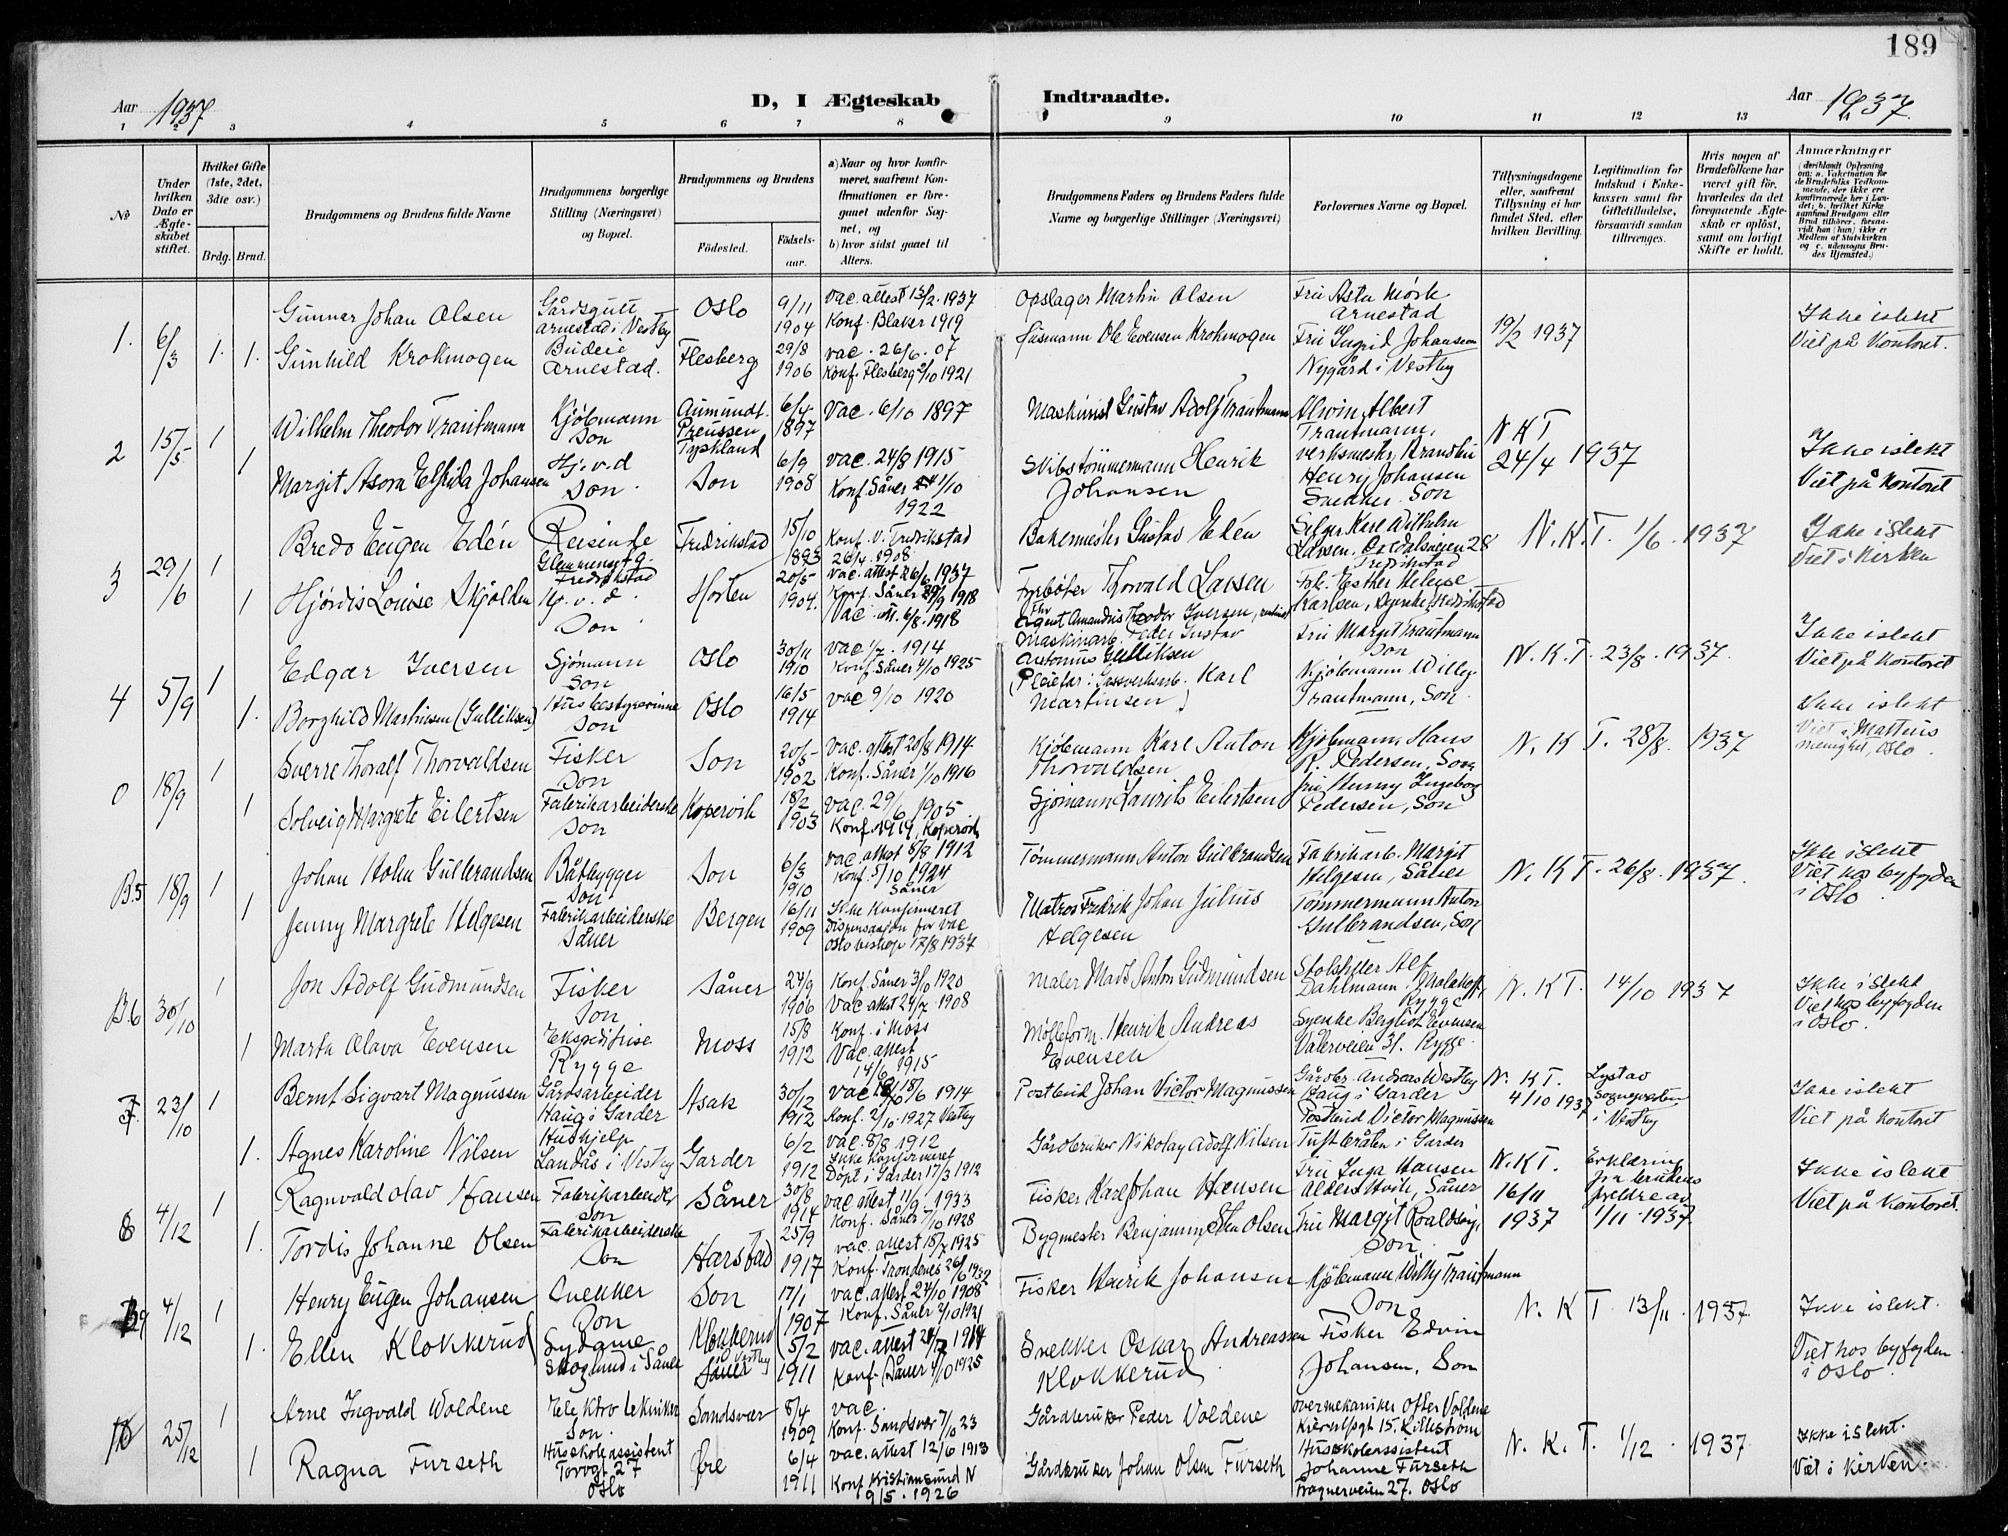 189
Aar 1937
D, I Ægteskab
Indtraadte.
Aar 1937.
1 2 3 4 5 6 7 8 9 10 11 12 13
No
Under hvilken Dato er Ægteskabet stiftet.
Hvilket Gifte (1ste, 2det, 3die osv.)
Brdg. Brud.
Brudgommens og Brudens fulde Navne
Brudgommens borgerlige Stilling (Næringsvei) og Bopæl.
Brudgommens og Brudens
Födested.
Födselsaar.
a) Naar og hvor konfirmeret, saafremt Konfirmationen er foregaaet udenfor Sognet, og
b) hvor sidst gaaet til Alters.
Brudgommens Faders og Brudens Faders fulde Navne og borgerlige Stillinger (Næringsvei)
Forlovernes Navne og Bopæl.
Tillysningsdagene eller, saafremt Tillysning ei har fundet Sted, efter hvilken Bevilling.
Legitimation for Indskud i Enkekassen samt for Giftetilladelse, forsaavidt saadan tiltrænges.
Hvis nogen af Brudefolkene har været gift för, hvorledes da det foregaaende Ægteskab er oplöst, samt om lovligt Skifte er holdt.
Anmærkninger
(deriblandt Oplysning om: a. Vakcination for de Brudefolks Vedkommende, der ikke ere konfirmerede her i Landet; b. hvilket Kirkesamfund Brudgom eller Brud tilhörer, forsaavidt han (hun) ikke er Medlem af Statskirken og c. udensogns Brudes Hjemsted.)
1. 6/3 1. Gunnar Johan Olsen Gårdsgutt Arnestad i Vestby Oslo 9/11 1904 Vac. attest 13/2 1937 Konf. Blaker 1919 Opslager Martin Olsen Fru Asta Mörk Arnestad 19/2 1937 Ikke i slekt
1. Gunhild Krokmogen Budeie Arnestad. Flesberg 29/8 1906 vac. 26/6. 07 Konf. Flesberg 2/10 1921 Husmann Ole Evensen Krokmogen Fru Ingrid Johansen Nygård i Vestby Viet på Kontoret.
2 15/5 1 Wilhelm Theodor Trautmann Kjöbmann Son Aumundt. Preussen Tyskland 6/4 1897 Vac. 6/10 1897 Maskinist Gustav Adolf Trautmann Alwin Albert Trautmann, verksmester, Brandbu N K T 24/4 1937 Ikke i slekt
1 Margit Asora Elfrida Johansen Hj.v.d Son. Son 6/9 1908 vac. 24/8 1915 Konf. Såner 1/10 1922 Skibstömmermann Henrik Johansen Henry Johansen Snekker. Son Viet på Kontoret
3 29/6 1 Bredo Eugen Edén Reisende Glemmengt 9. Fredrikstad Fredrikstad 15/10 1893 Konf. V. Fredrikstad 26/4 1908 Bakermester Gustav Edén Selger Karl Wilhelm Larsen. Oredalsveien 28 Fredrikstad N.K.T. 1/6. 1937 Ikke i slekt
1 Hjördis Louise Skjölden Hj. v. d. Son. Horten 20/5 1904. Vac. attest 26/6 1937 Konf. Såner 29/9 1918 Vac. att. 6/8. 1918 Fyrböter Thorvald Larsen Frk. Esther Helene Karlsen, Fredrikstad Viet i Kirken
4 5/9 1 Edgar Iversen Sjömann Son Oslo 30/11 1910 vac 1/2. 1914 Konf. Såner 4/10 1925 Agent Amandus Theodor Iversen, Fru Margit Trautmann Son N.K.T. 23/8. 1937. Ikke i slekt
1. Borghild Martinsen (Gulliksen) Husbestyrerinne Son Oslo 16/5 1914 vac 9/10 1920 Maskinarb. Peder Gustav Antonius Gulliksen (Pleiefar: Gassverksarb. Karl Martinsen) Kjöbmann Willy Trautmann, Son Viet på Kontoret
0 18/9 1 Sverre Thoralf Thorvaldsen Fisker Son Son 20/5 1902 Vac. attest 20/8 1914 Konf. Såner 1/10 1916 Kjöbmann Karl Anton Thorvaldsen Kjöbmann Hans R. Pedersen, Son N. K T. 28/8. 1937 Ikke i slekt
1 Solveig Margrete Eilertsen Fabrikarbeiderske Son Kopervik 18/2 1903 vac. 29/6 1905 Konf. 1919, Kopervik Sjömann Laurits Eilertsen fru Henny Ingeborg Pedersen, Son Viet i Matteus menighet, Oslo.
B.5 18/9 1 Johan Holm Gulbrandsen Båtbygger Son Son 6/3 1910 vac. attest 8/8 1912 Konf. 5/10 1924 Såner Tömmermann Anton Gulbrandsen Fabrikarb. Margit Helgesen, Såner N. K T. 26/8. 1937. Ikke i slekt
1 Jenny Margrete Helgesen Fabrikarbeiderske Såner Bergen 16/11 1909 Ikke Konfirmeret Dispensasjon for vac. Oslo biskop 17/8 1937 Matros Fredrik Johan Julius Helgesen Tömmermann Anton Gulbrandsen, Son Viet hos byfogden i Oslo.
B.6 30/10 1 Jon Adolf Gudmundsen Fisker Son Såner 24/9 1906 Konf. Såner 3/10 1920 Vac attest 24/7 1908 Maler Mads Anton Gudmundsen Alf Dahlmann, Malakoff, Rygge N. K T. 14/10 1937 Ikke i slekt
1 Marta Olava Evensen Ekspeditrise Rygge Moss 15/8 1912 Konf. i Moss Vac. attest 14/6 1915 Mölleform. Henrik Andreas Evensen Syerske Bergliot Evensen Vålerveien 31. Rygge. Viet hos byfogden i Oslo.
7. 23/10 1 Bernt Sigvart Magnussen Gårdsarbeider Haug i Garder Asak 30/12 1912 vac 18/6 1914 Konf. 2/10. 1927 Vestby Postbud Johan Victor Magnussen Gårdbr. Andreas Westby Haug i Garder N. K T. 4/10 1937 Lystad Sogneprest i Vestby Ikke i slekt
1. Agnes Karoline Nilsen Hushjelp Landås i Vestby Garder 6/2 1912 vac. 8/8 1912 Ikke Konfirmeret Döpt i Garder 17/3 1912 Gårdbruker Nikolay Adolf Nilsen Postbud Victor Magnussen Tuftbråten i Garder Viet på Kontoret
8 4/12 1 Ragnvald Olav Hansen Fabrikarbeider Son Såner 30/8 1914 vac attest 11/9 1933 Konf. Såner 7/10 1928 Fisker Karl Johan Hansen Fru Inga Hansen Alders Hvile, Såner N. K T. 16/11 1937 Erklæring fra brudens foreldre av 1/11. 1937. Ikke i slekt
1. Tordis Johanne Olsen Fabrikarbeiderske Son Harstad 25/9 1917 vac. attest 15/7 1925 Konf. Trondenes 26/6 1932 Bygmester Benjamin Olsen Fru Margit Roaldseig, Son. Viet på Kontoret.
B9 4/12 1 Henry Eugen Johansen Snekker Son Son 17/1 1907 vac. attest 24/10 1908 Konf. Såner 2/10 1921 Fisker Henrik Johansen Kjöbmann Willy Trautmann Son N. K T. 13/11. 1937 Ikke i slekt.
1. Ellen Klokkerud Sydame Skoglund i Såner Klokkerud i Vestby 5/2 1911 vac. attest 1914 Konf. Såner 4/10 1925 Snekker Oskar Andreassen Klokkerud Fisker Edvin Johansen, Son Viet hos byfogden i Oslo.
10 25/12 1 Arne Ingvald Voldene Elektrotekniker Son. Sandsvær 8/4 1909 vac. Konf. Sandsvær 7/10 23 Gårdbruker Peder Voldene overmekaniker Ofter Voldene 15. Lilleström N. K. T. 1/12. 1937 Ikke i slekt.
1 Ragna Furseth Husskoleassistent Torvgt 27 Oslo Öre 6/4 1911 vac. attest 12/6 1913 Konf Kristiansund N 9/5. 1926 Gårdbruker Johan Olsen Furseth Husskoleassistent Johanne Furseth Frognerveien 27. Oslo Viet i kirken.